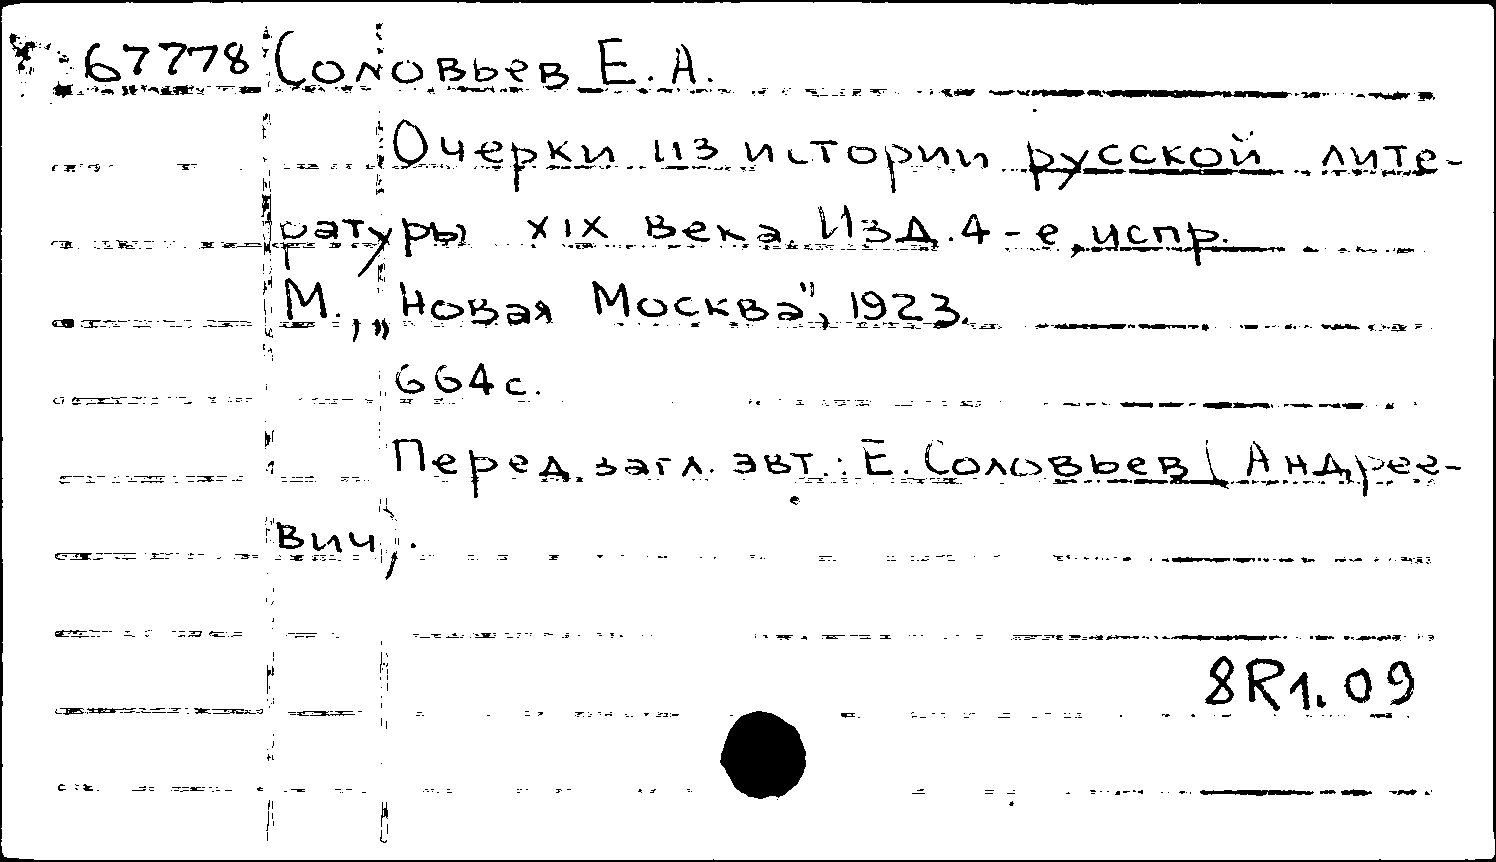 67778 Соловьев Е. А.
Очерки из истории русской лите-
ратуры XIX века. Изд. 4-е, испр.
М., „Новая Москва", 1923.
664 с.
Перед. загл. авт.: Е. Соловьев (Андрее-
вич).
8R1.09